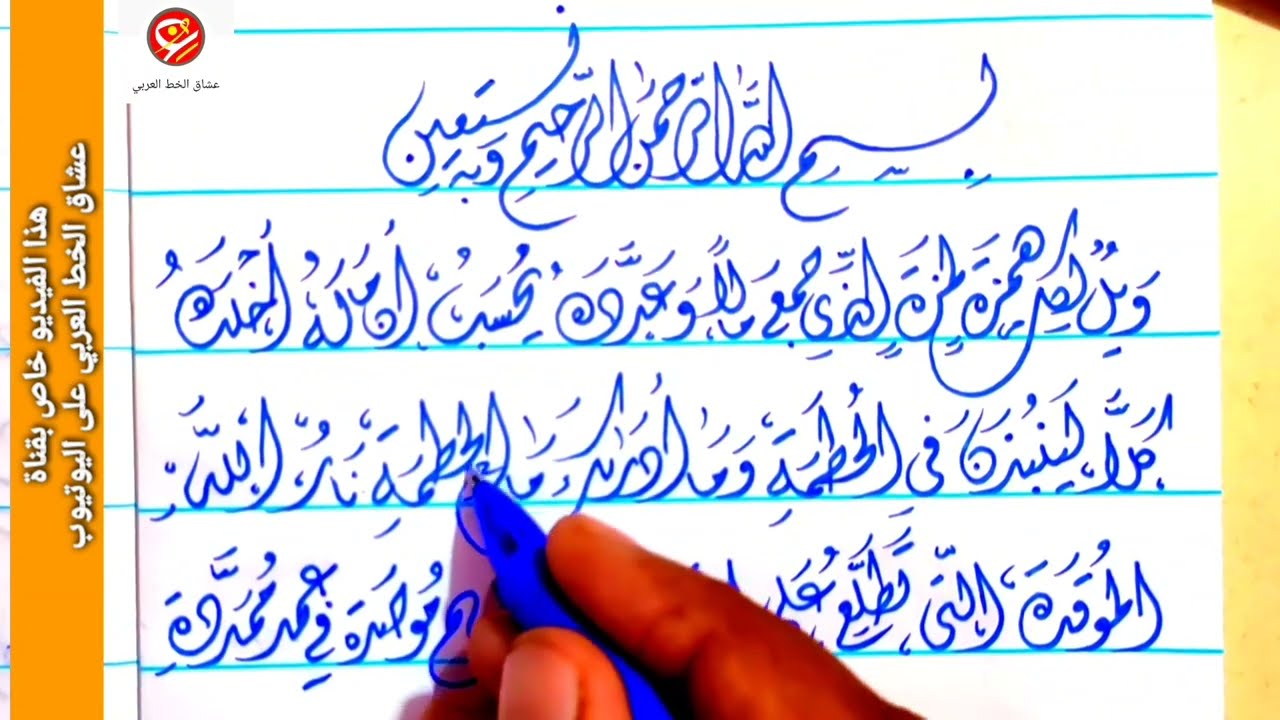 عشاق الخط العربي
هذا الفيديو خاص بقناة
عشاق الخط العربي على اليوتيوب
بسم الله الرحمن الرحيم وبه نستعين
ويل لكل همزة لمزة الذي جمع مالا وعدده يحسب أن ماله أخلده
كلا لينبذن في الحطمة وما أدراك ما الحطمة نار الله
الموقدة التي تطلع على مؤصدة في عمد ممددة